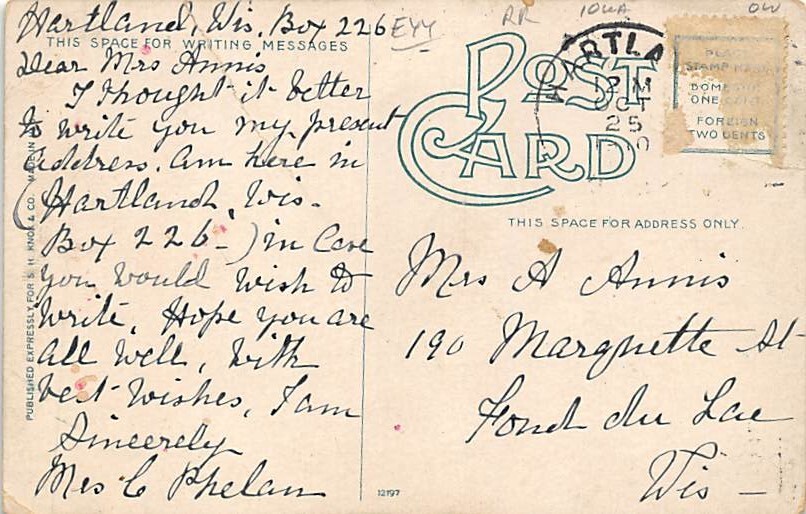 Hartland, Wis, Box 226
THIS SPACE FOR WRITING MESSAGES
Dear Mrs Annis
I thought it better
to write you my present
address. am here in
(Hartland, Wis.
Box 226-) in Case
you would wish to
write, Hope you are
all well, with
best wishes, I am
Sincerely
Mrs C Phelan
PUBLISHED EXPRESSLY FOR S. H. KNOX & CO. MADE IN
EYY
RR
IOWA
OW
HARTLA
M
OCT
25
POST
CARD
PLACE
STAMP HERE
DOMESTIC
ONE CENT
FOREIGN
TWO CENTS
THIS SPACE FOR ADDRESS ONLY.
Mrs A Annis
190 Marquette St-
Fond du Lac
Wis-
12197